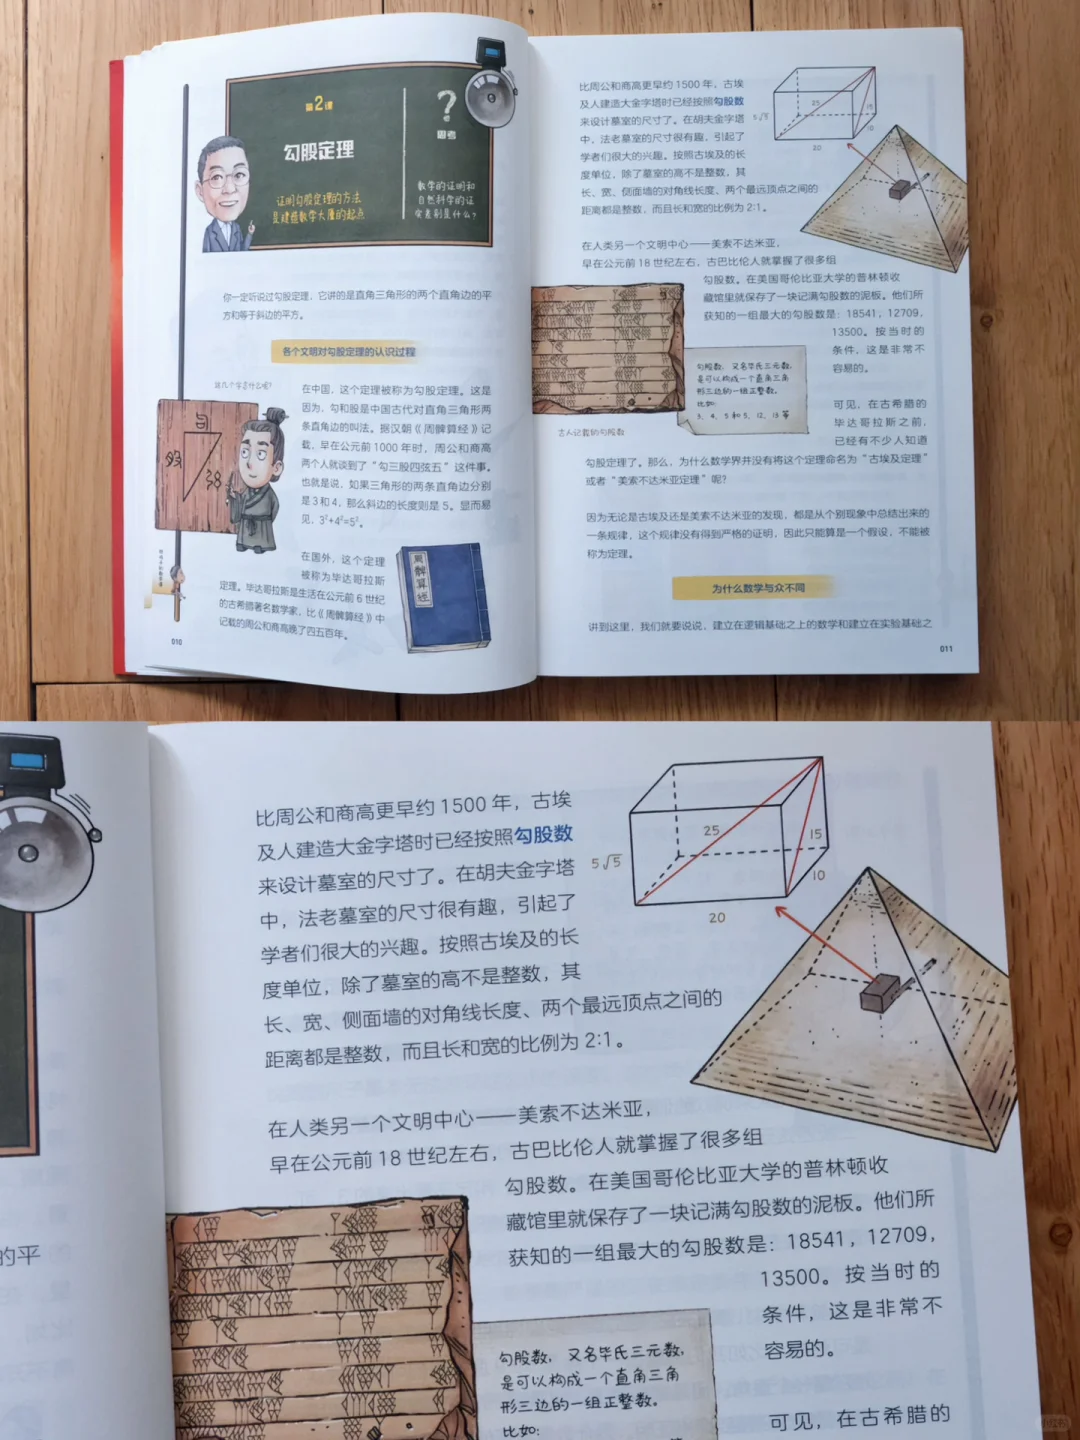 第2课
勾股定理
证明勾股定理的方法
是建造数学大厦的起点
?
思考
数学的证明和
自然科学的证
实差别是什么?
你一定听说过勾股定理,它讲的是直角三角形的两个直角边的平
方和等于斜边的平方。
各个文明对勾股定理的认识过程
这几个字念什么呢?
在中国,这个定理被称为勾股定理。这是
因为,勾和股是中国古代对直角三角形两
条直角边的叫法。据汉朝《周髀算经》记
载,早在公元前1000年时,周公和商高
两个人就谈到了“勾三股四弦五”这件事。
也就是说,如果三角形的两条直角边分别
是3和4,那么斜边的长度则是5。显而易
见,3²+4²=5²。
在国外,这个定理
被称为毕达哥拉斯
定理。毕达哥拉斯是生活在公元前6世纪
的古希腊著名数学家,比《周髀算经》中
记载的周公和商高晚了四五百年。
周髀算经
010
比周公和商高更早约1500年,古埃
及人建造大金字塔时已经按照勾股数
来设计墓室的尺寸了。在胡夫金字塔
中,法老墓室的尺寸很有趣,引起了
学者们很大的兴趣。按照古埃及的长
度单位,除了墓室的高不是整数,其
长、宽、侧面墙的对角线长度、两个最远顶点之间的
距离都是整数,而且长和宽的比例为2:1。
25
15
5√5
10
20
在人类另一个文明中心——美索不达米亚,
早在公元前18世纪左右,古巴比伦人就掌握了很多组
勾股数。在美国哥伦比亚大学的普林顿收
藏馆里就保存了一块记满勾股数的泥板。他们所
获知的一组最大的勾股数是:18541,12709,
13500。按当时的
条件,这是非常不
容易的。
勾股数,又名毕氏三元数,
是可以构成一个直角三角
形三边的一组正整数。
比如:
3、4、5和5、12、13等
古人记载的勾股数
可见,在古希腊的
毕达哥拉斯之前,
已经有不少人知道
勾股定理了。那么,为什么数学界并没有将这个定理命名为“古埃及定理”
或者“美索不达米亚定理”呢?
因为无论是古埃及还是美索不达米亚的发现,都是从个别现象中总结出来的
一条规律,这个规律没有得到严格的证明,因此只能算是一个假设,不能被
称为定理。
为什么数学与众不同
讲到这里,我们就要说说,建立在逻辑基础之上的数学和建立在实验基础之
011
的平
比周公和商高更早约1500年,古埃
及人建造大金字塔时已经按照勾股数
来设计墓室的尺寸了。在胡夫金字塔
中,法老墓室的尺寸很有趣,引起了
学者们很大的兴趣。按照古埃及的长
度单位,除了墓室的高不是整数,其
长、宽、侧面墙的对角线长度、两个最远顶点之间的
距离都是整数,而且长和宽的比例为2:1。
25
15
5√5
10
20
在人类另一个文明中心——美索不达米亚,
早在公元前18世纪左右,古巴比伦人就掌握了很多组
勾股数。在美国哥伦比亚大学的普林顿收
藏馆里就保存了一块记满勾股数的泥板。他们所
获知的一组最大的勾股数是:18541,12709,
13500。按当时的
条件,这是非常不
容易的。
勾股数,又名毕氏三元数,
是可以构成一个直角三角
形三边的一组正整数。
比如:
可见,在古希腊的